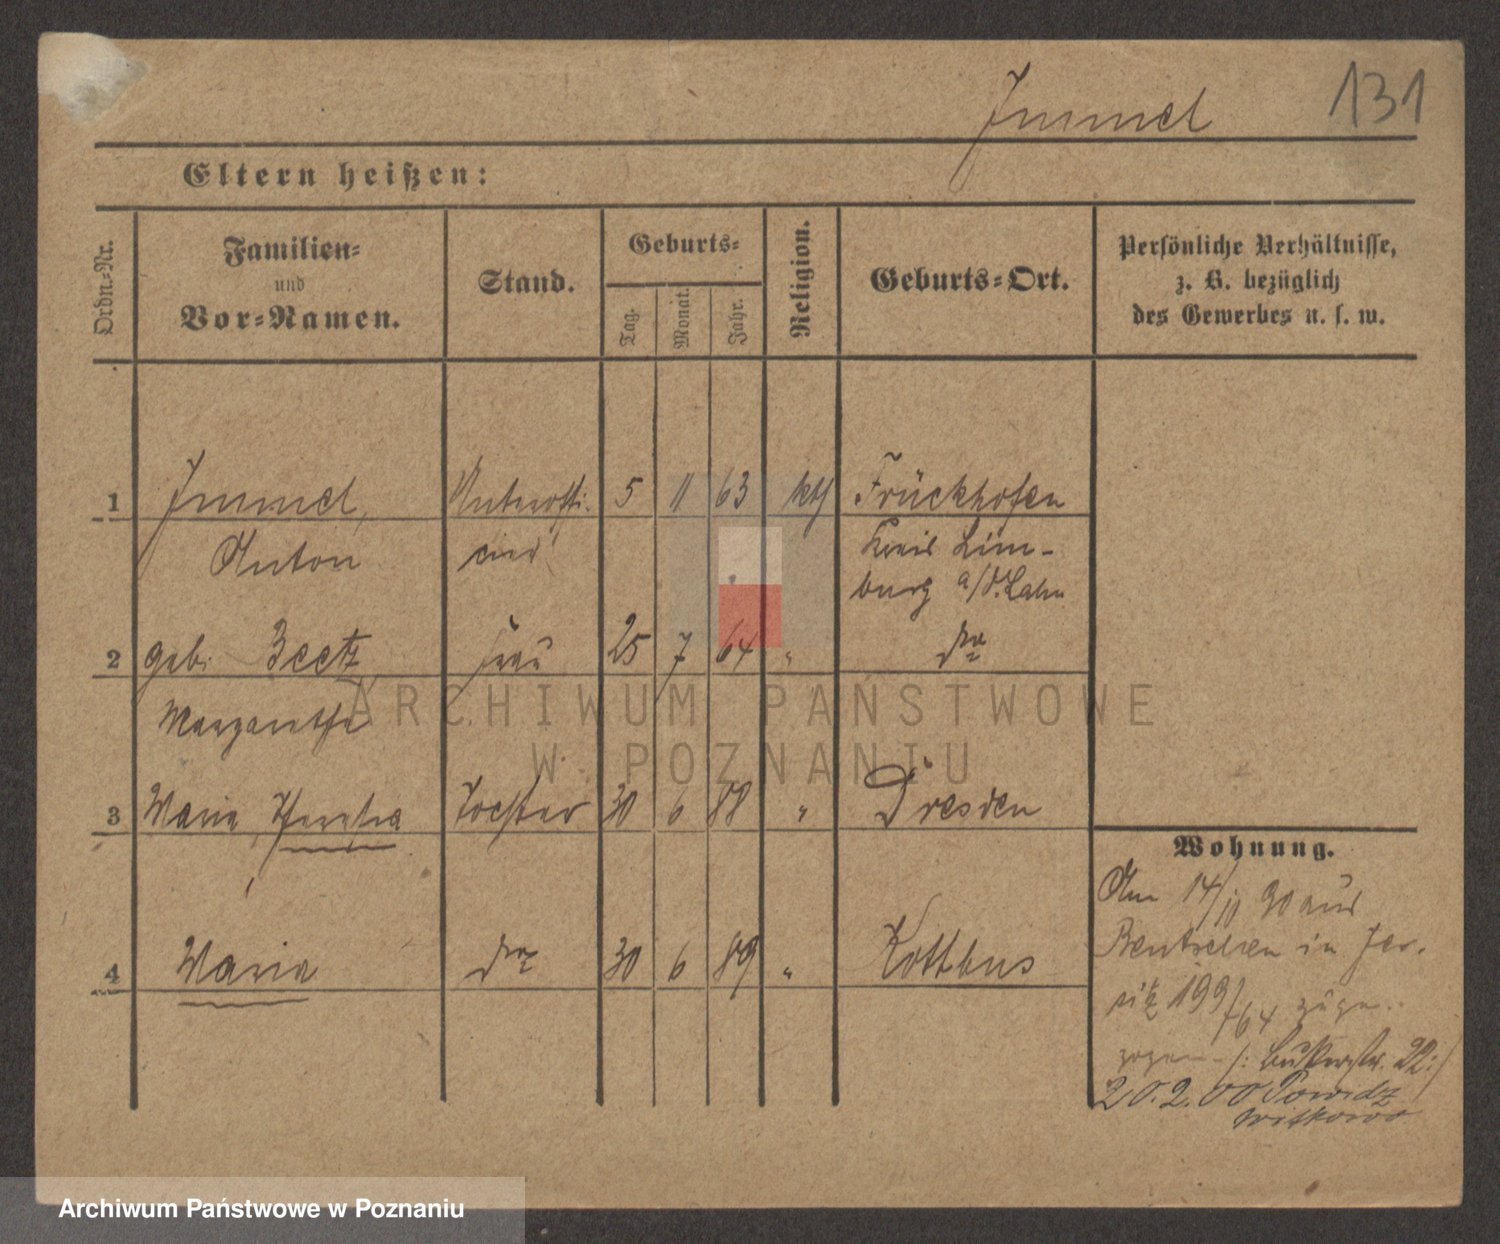 Immel 131
Eltern heißen:
Ordn.-Nr.
Familien-
und
Vor-Namen.
Stand.
Geburts-
Tag.
Monat.
Jahr.
Religion.
Geburts-Ort.
Persönliche Verhältnisse,
z. B. bezüglich
des Gewerbes u. s. w.
1 Immel, Unteroffi- 5 11 63 kth Frückhofen
Anton cier Kreis Lim-
burg a/d. Lahn
2 geb. Zeetz Frau 25 7 64 " do
Margarethe
3 Maria Tochter 30 6 88 " Dresden
4 Maria do 30 6 89 " Kottbus
Wohnung.
Am 14/11 90 aus
Bentschen in Jer-
sitz 199/64 zuge-
zogen 22:/
20.2.00 Powidz
Witkowo
ARCHIWUM PAŃSTWOWE
W POZNANIU
Archiwum Państwowe w Poznaniu